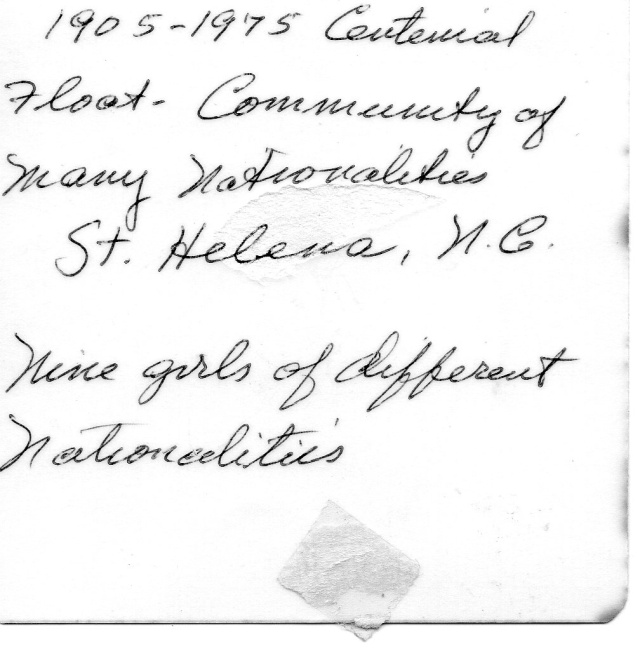 1905-1975 Centenial
Float- Community of
Many Nationalities
St. Helena, N.C.
Nine girls of different
Nationalities